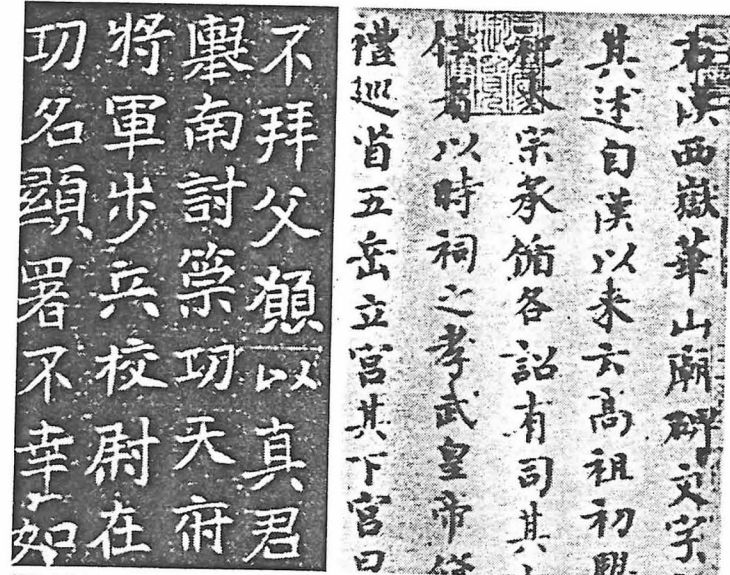 不拜父以真君
舉南討功天府
將軍步兵校尉在
功名顯署不幸如
右漢西嶽華山廟碑文字
其述自漢以来云高祖初興
宗承循各詔有司其
者以時祠之孝武皇帝修
禮巡省五岳立宮其下宮曰